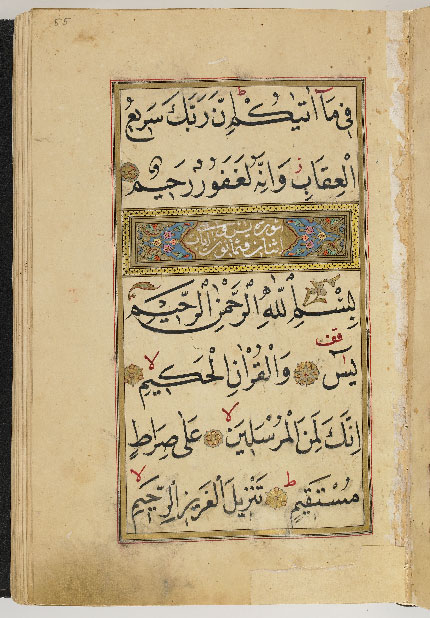 55
فِى مَآ اٰتٰيكُمْ ط اِنَّ رَبَّكَ سَرِيعُ
الْعِقَابِ ز وَاِنَّهُ لَغَفُورٌ رَحِيمٌ
سورة يس
بِسْمِ اللّٰهِ الرَّحْمٰنِ الرَّحِيمِ
يٰسٓ قف وَالْقُرْاٰنِ الْحَكِيمِ لا
اِنَّكَ لَمِنَ الْمُرْسَلِينَ لا عَلٰى صِرَاطٍ
مُسْتَقِيمٍ ط تَنْزِيلَ الْعَزِيزِ الرَّحِيمِ لا